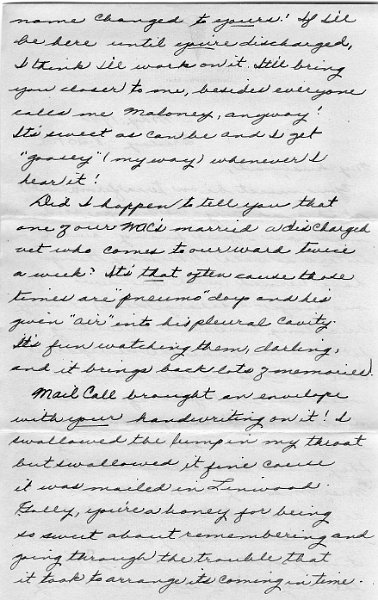 name changed to yours! If I'll
be here until you're discharged,
I think I'll work on it. It'll bring
you closer to me, besides everyone
calls me Maloney, anyway!
It's sweet as can be and I get
"goosey" (my way) whenever I
hear it!
Did I happen to tell you that
one of our WAC's married a discharged
vet who comes to our ward twice
a week? It's that often cause those
times are "pneumo" days and he's
given "air" into his pleural cavity.
It's fun watching them, darling,
and it brings back lots of memories!
Mail Call brought an envelope
with your handwriting on it! I
swallowed the lump in my throat
but swallowed it fine cause
it was mailed in Linwood.
Golly, you're a honey for being
so sweet about remembering and
going through the trouble that
it took to arrange its coming in time.